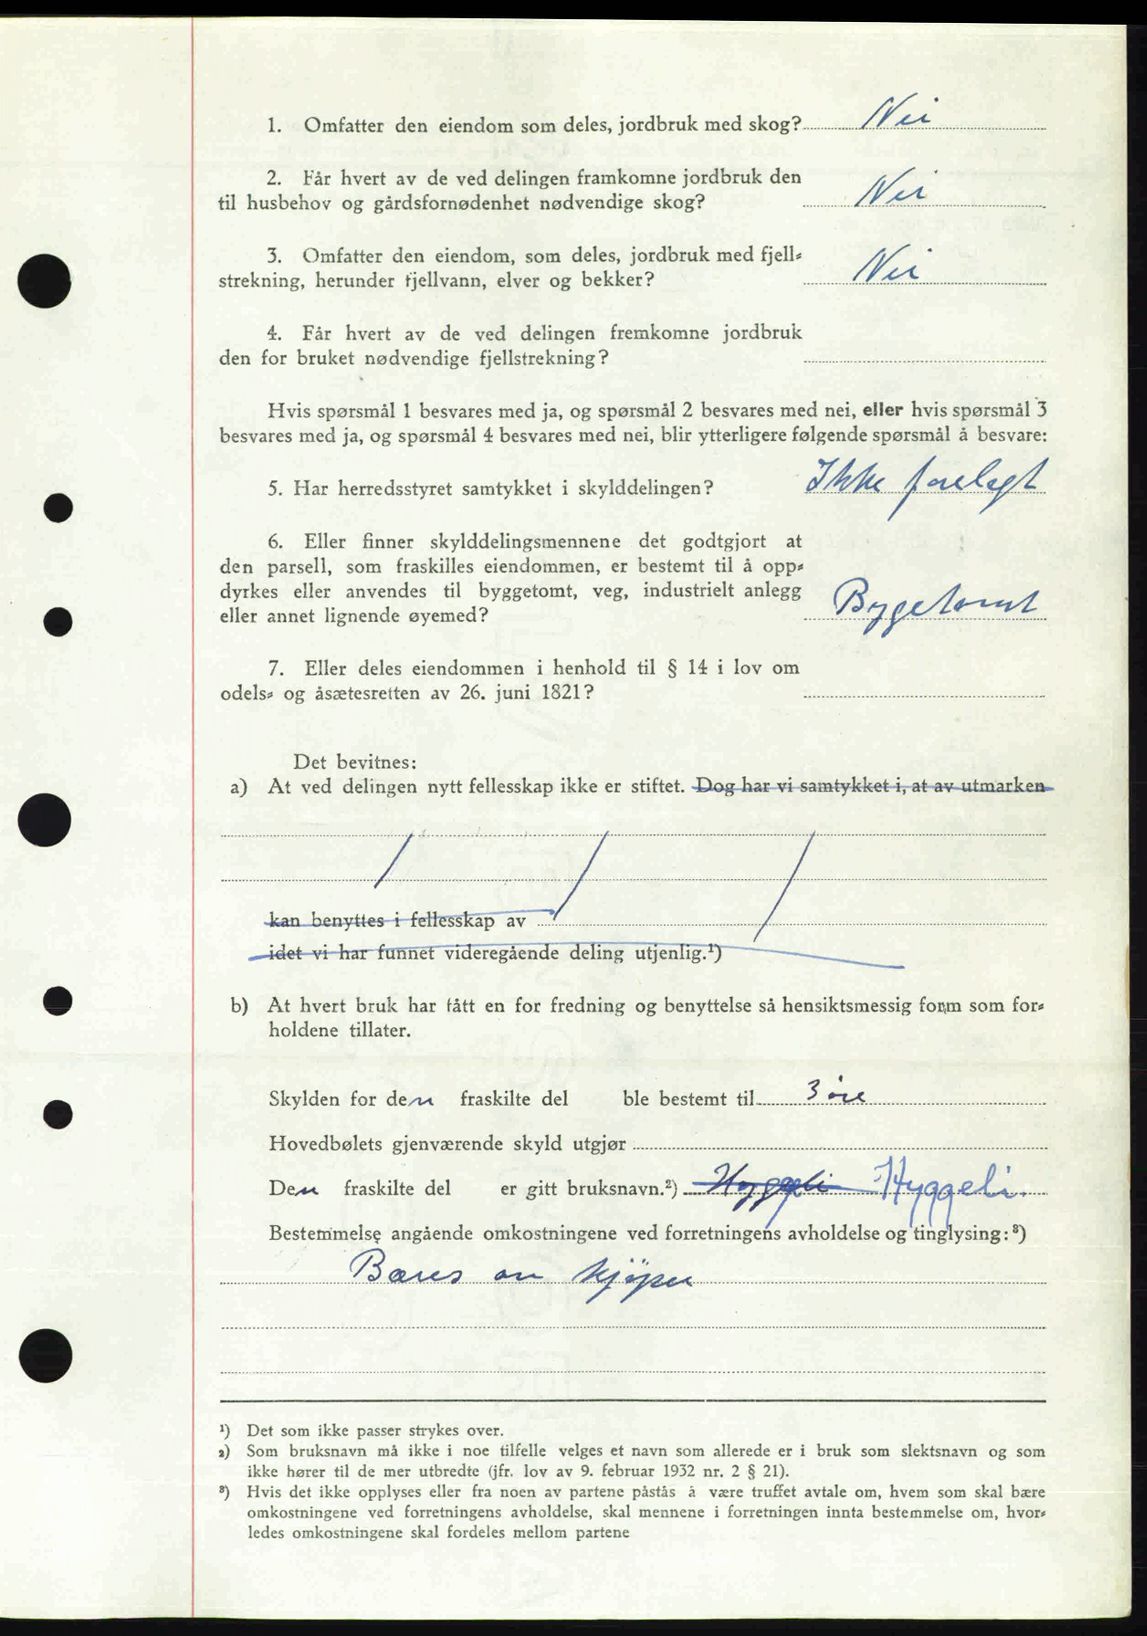 1. Omfatter den eiendom som deles, jordbruk med skog? Nei
2. Får hvert av de ved delingen framkomne jordbruk den
til husbehov og gårdsfornødenhet nødvendige skog? Nei
3. Omfatter den eiendom, som deles, jordbruk med fjell-
strekning, herunder fjellvann, elver og bekker? Nei
4. Får hvert av de ved delingen fremkomne jordbruk
den for bruket nødvendige fjellstrekning?
Hvis spørsmål 1 besvares med ja, og spørsmål 2 besvares med nei, eller hvis spørsmål 3
besvares med ja, og spørsmål 4 besvares med nei, blir ytterligere følgende spørsmål å besvare:
5. Har herredsstyret samtykket i skylddelingen? Ikke forelagt
6. Eller finner skylddelingsmennene det godtgjort at
den parsell, som fraskilles eiendommen, er bestemt til å opp-
dyrkes eller anvendes til byggetomt, veg, industrielt anlegg
eller annet lignende øyemed? Bygetomt
7. Eller deles eiendommen i henhold til § 14 i lov om
odels- og åsætesretten av 26. juni 1821?
Det bevitnes:
a) At ved delingen nytt fellesskap ikke er stiftet. Dog har vi samtykket i, at av utmarken
kan benyttes i fellesskap av
idet vi har funnet videregående deling utjenlig.¹)
b) At hvert bruk har fått en for fredning og benyttelse så hensiktsmessig form som for-
holdene tillater.
Skylden for den fraskilte del ble bestemt til 3 øre
Hovedbølets gjenværende skyld utgjør
Den fraskilte del er gitt bruksnavn.²) Hyggeli Hyggeli.
Bestemmelse angående omkostningene ved forretningens avholdelse og tinglysing:³)
Bæres av kjøper
¹) Det som ikke passer strykes over.
²) Som bruksnavn må ikke i noe tilfelle velges et navn som allerede er i bruk som slektsnavn og som
ikke hører til de mer utbredte (jfr. lov av 9. februar 1932 nr. 2 § 21).
³) Hvis det ikke opplyses eller fra noen av partene påstås å være truffet avtale om, hvem som skal bære
omkostningene ved forretningens avholdelse, skal mennene i forretningen innta bestemmelse om, hvor-
ledes omkostningene skal fordeles mellom partene